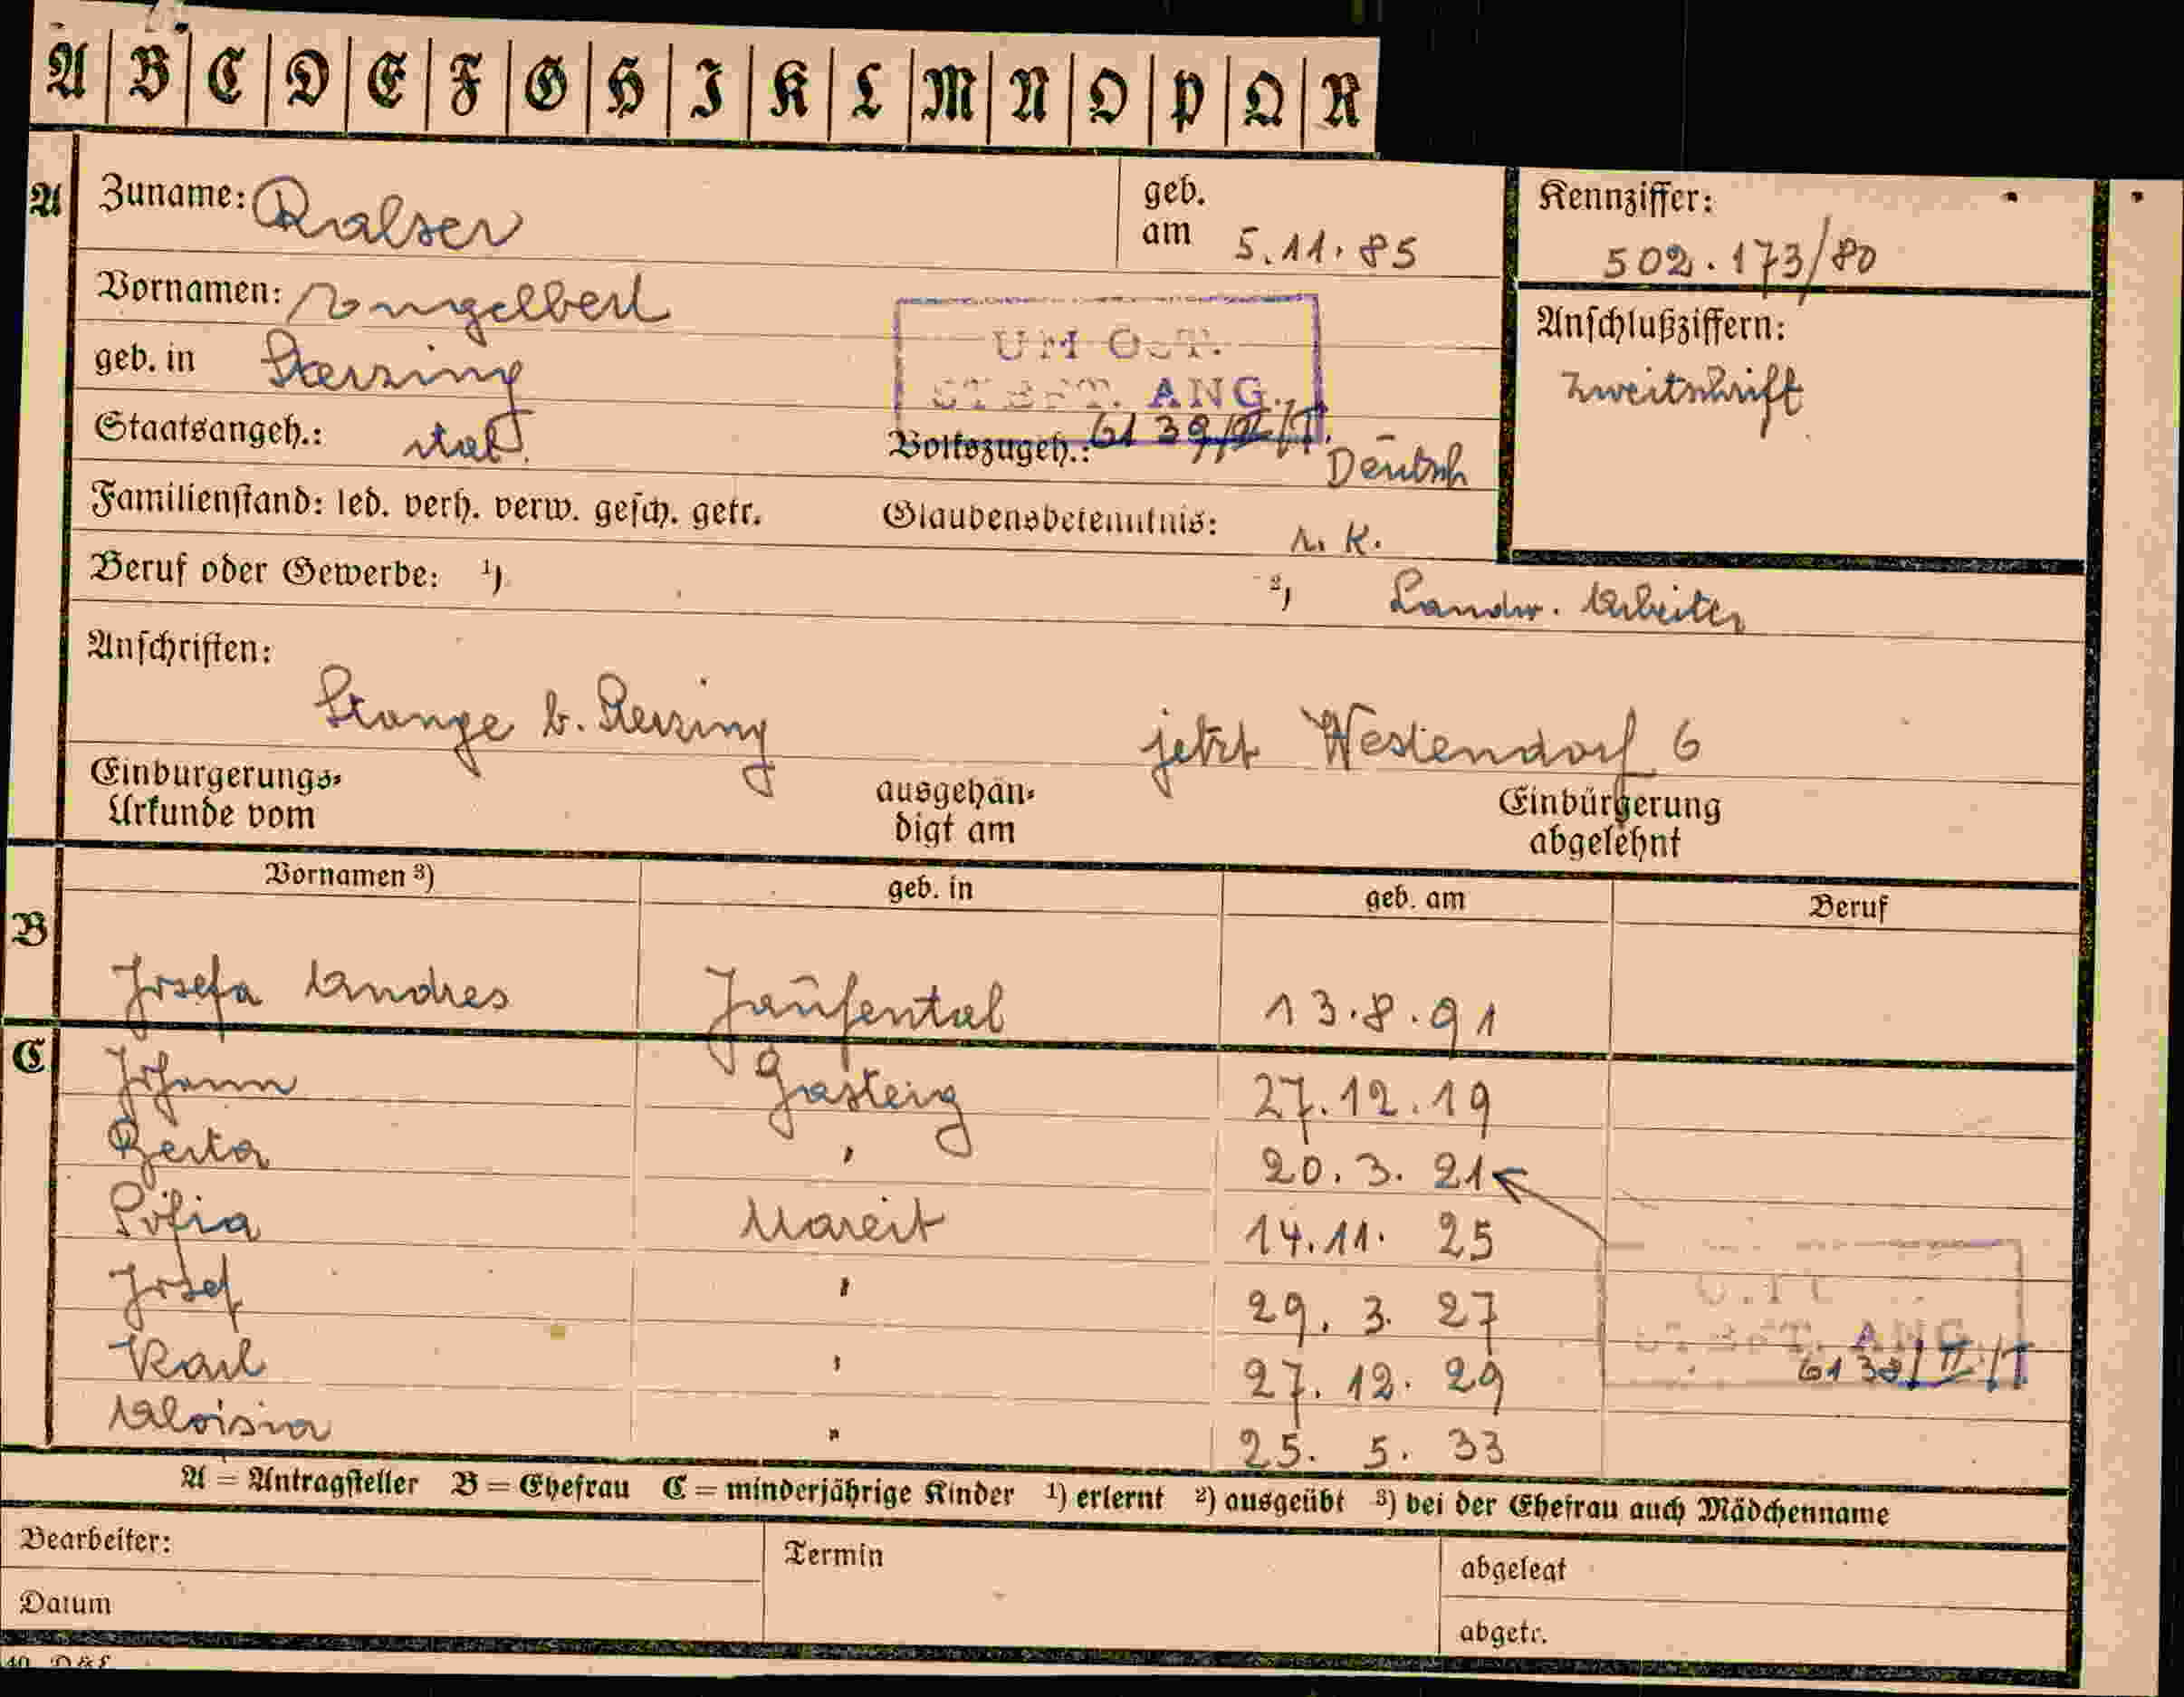 A B C D E F G H I K L M N O P Q R
A Zuname: Ralser geb. am 5.11.85 Kennziffer: 502.173/80
Vornamen: Engelbert Anschlußziffern:
UM OST. Zweitschrift
geb. in Sterzing
ANG.
Staatsangeh.: ital. Volkszugeh.: Deutsch
Familienstand: led. verh. verw. gesch. getr. Glaubensbekenntnis: r. k.
Beruf oder Gewerbe: ¹) ²) Landw. Arbeiter
Anschriften:
Stange b. Sterzing jetzt Westendorf 6
Einbürgerungs-Urkunde vom ausgehändigt am Einbürgerung abgelehnt
B Vornamen ³) geb. in geb. am Beruf
Josefa Andres Jaufental 13.8.91
C Johann Gasteig 27.12.19
Berta " 20.3.21
Sofia Mareit 14.11.25
Josef " 29.3.27
Karl " 27.12.29
ANG.
6139/II/T
Aloisia " 25.5.33
A = Antragsteller B = Ehefrau C = minderjährige Kinder ¹) erlernt ²) ausgeübt ³) bei der Ehefrau auch Mädchenname
Bearbeiter: Termin abgelegt
Datum abgetr.